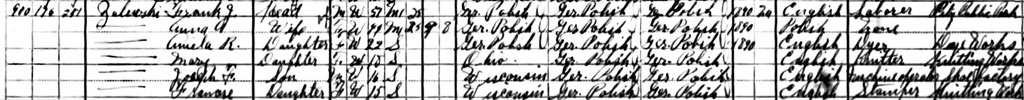 900 Zalewski Frank J Head M W 57 M Ger. Polish Ger. Polish Ger. Polish 1890 Na English Laborer City Public Park
Anna Wife F W M 9 8 Ger. Polish Ger. Polish Ger. Polish 1890 Polish None
Amelia R. Daughter F W 22 S Ger. Polish Ger. Polish Ger. Polish 1890 English Dyer Works
Mary Daughter F W S Ohio Ger. Polish Ger. Polish English Knitting Works
Joseph F. Son M W 16 S Wisconsin Ger. Polish Ger. Polish English Shoe Factory
Daughter F W 15 S Wisconsin Ger. Polish Ger. Polish English Stamper Knitting Works